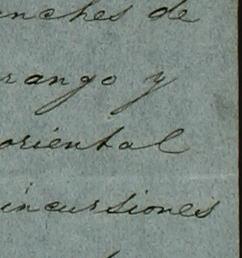 nches de
rango y
oriental
incursiones